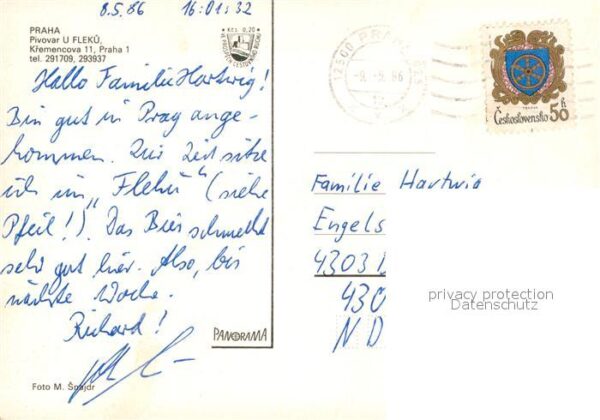 8.5.86 16:01:32
PRAHA
Pivovar U FLEKŮ
Křemencova 11, Praha 1
tel. 291709, 293937
Kčs. 0,20
Hallo Familie Hartwig!
Bin gut in Prag ange-
kommen. Zur Zeit sitze
ich im „Flekú“ (siehe
Pfeil!). Das Bier schmeckt
sehr gut hier. Also, bis
nächste Woche.
Richard!
PANORAMA
Foto M. Špajdr
PRAHA
-9.-9.86
Československo 50 h
Familie Hartwig
Engels
4303
430
ND
privacy protection
Datenschutz